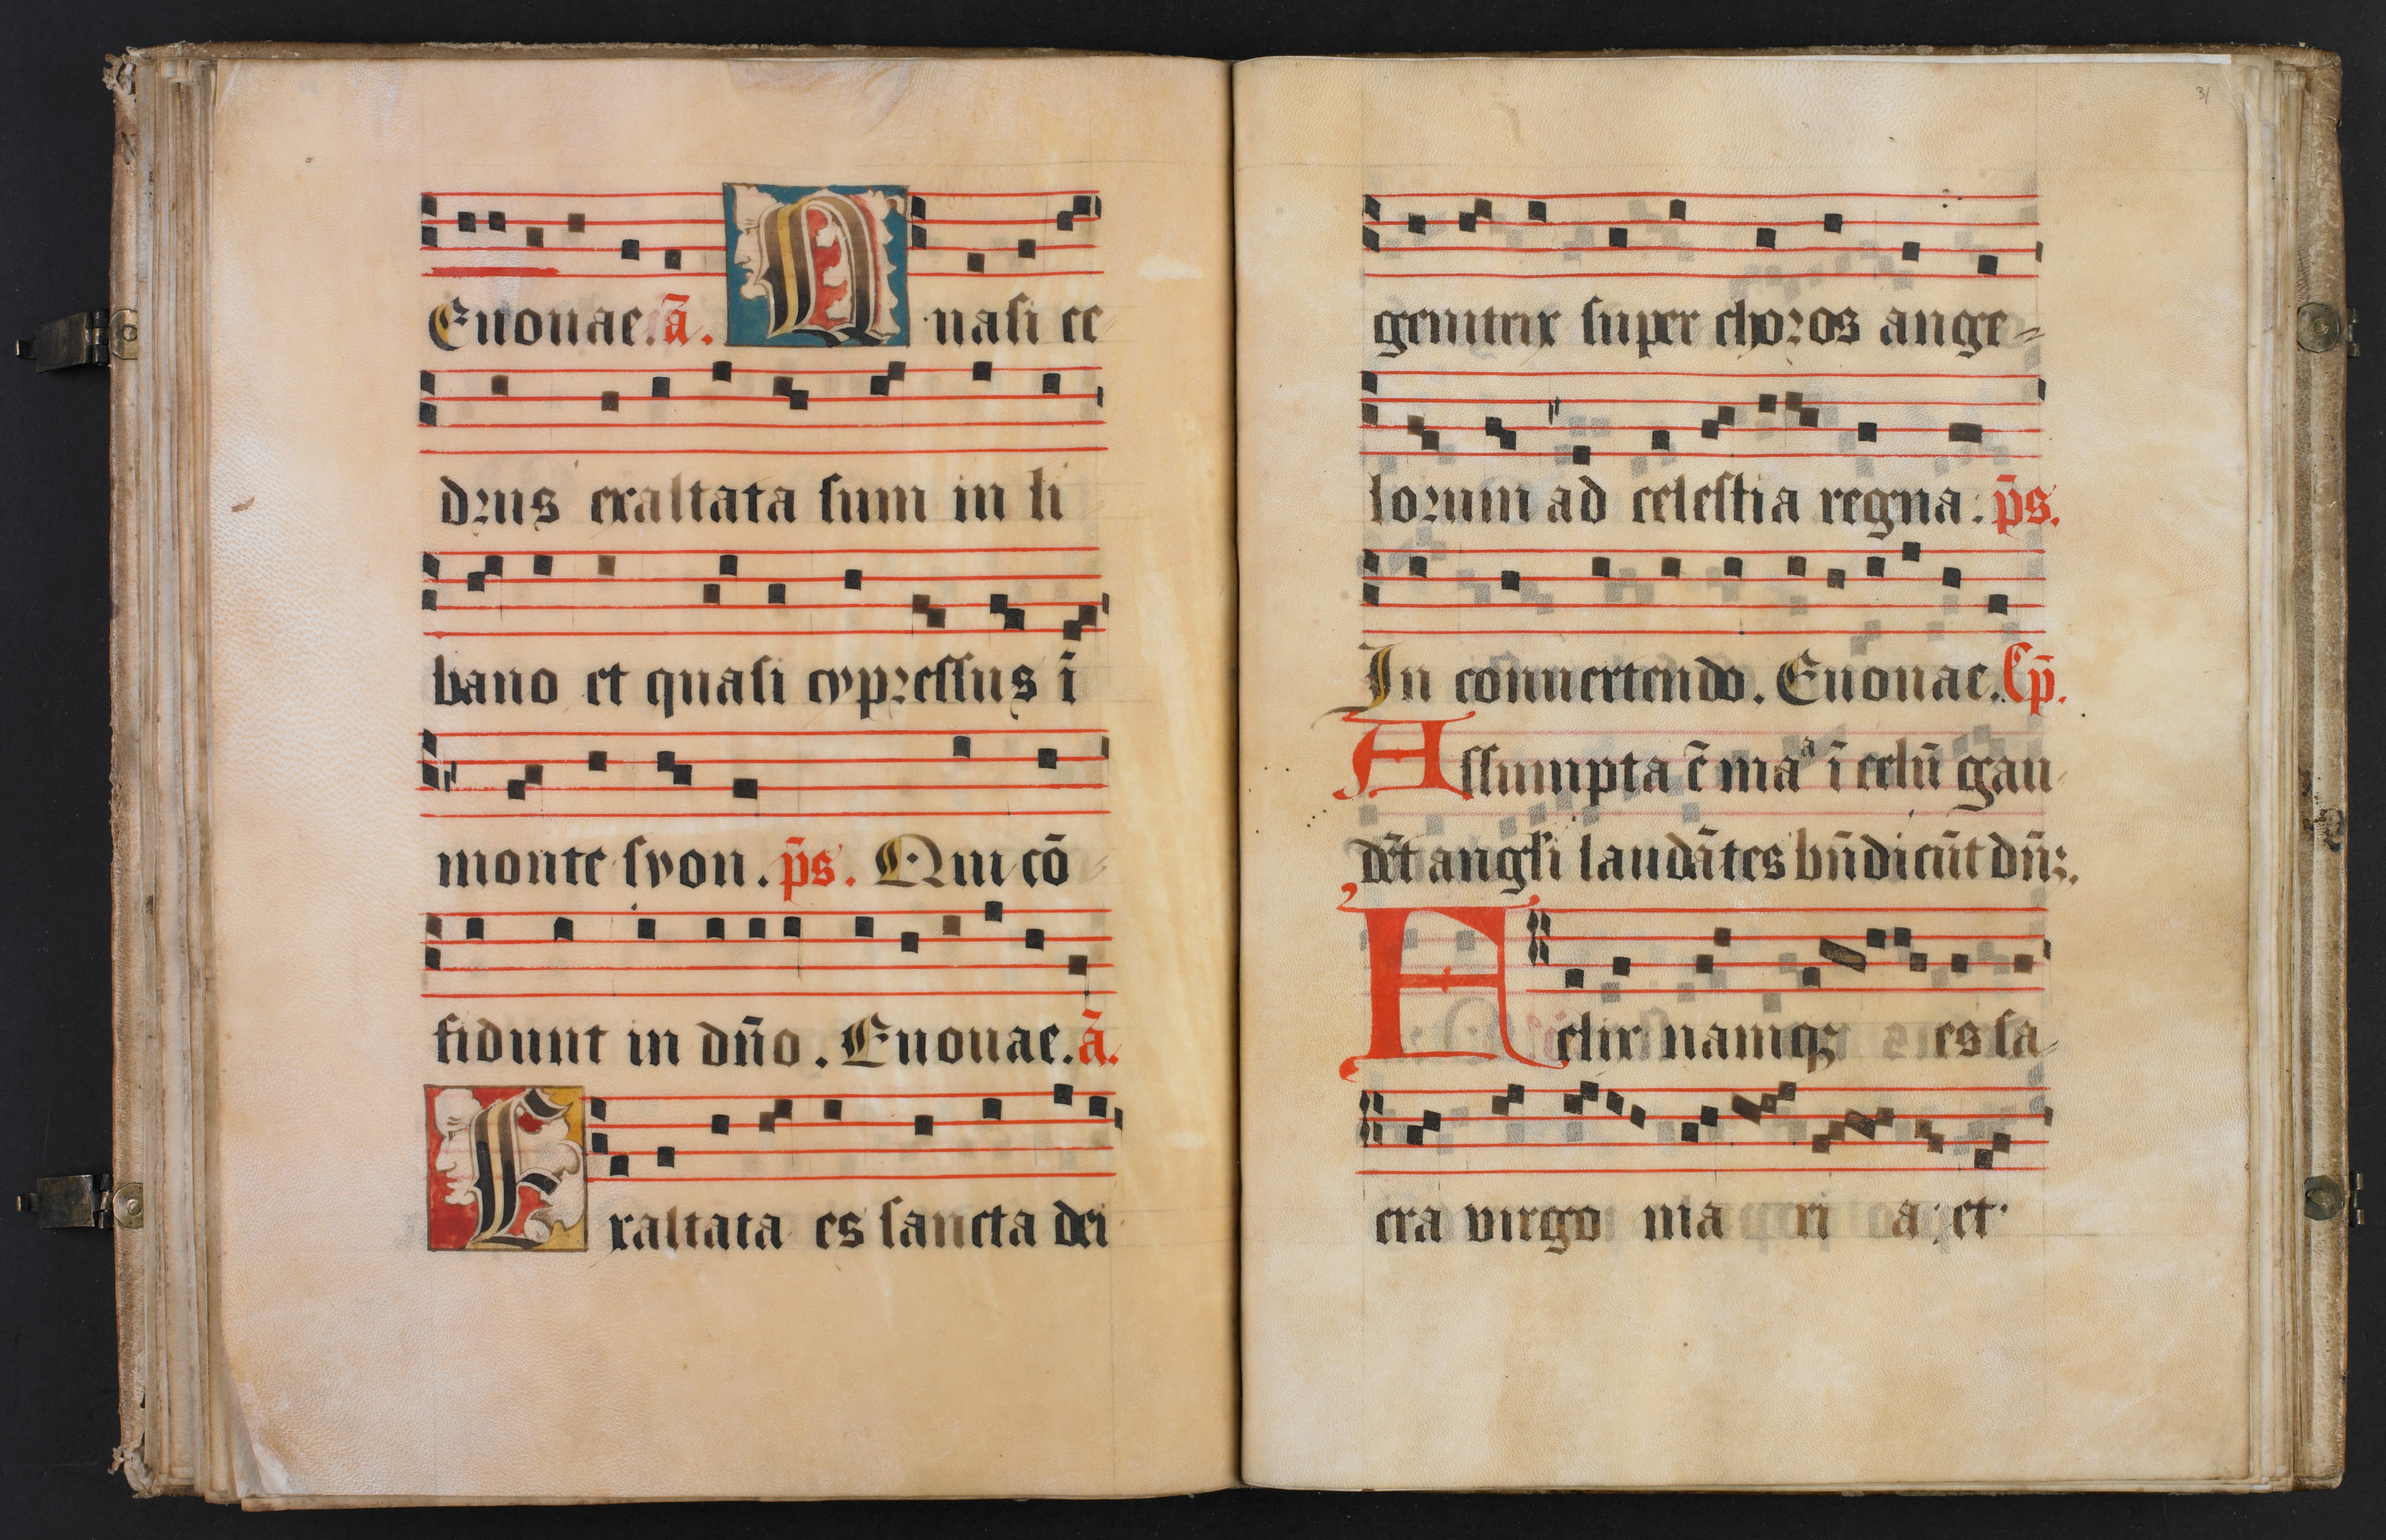 Euouae. ā. Quasi ce-
drus exaltata sum in li-
bano et quasi cypressus ī
monte syon. p̄s. Qui cō-
fidunt in dn̄o. Euouae. ā.
Exaltata es sancta dei
31
genitrix super choros ange-
lorum ad celestia regna: p̄s.
In conuertendo. Euouae. Cp̄.
Assumpta ē maᵃ ī celū gau-
dēt angeli laudātes bn̄dicūt dn̄ꝫ.
Felix namqꝫ es sa-
cra uirgo maria: et